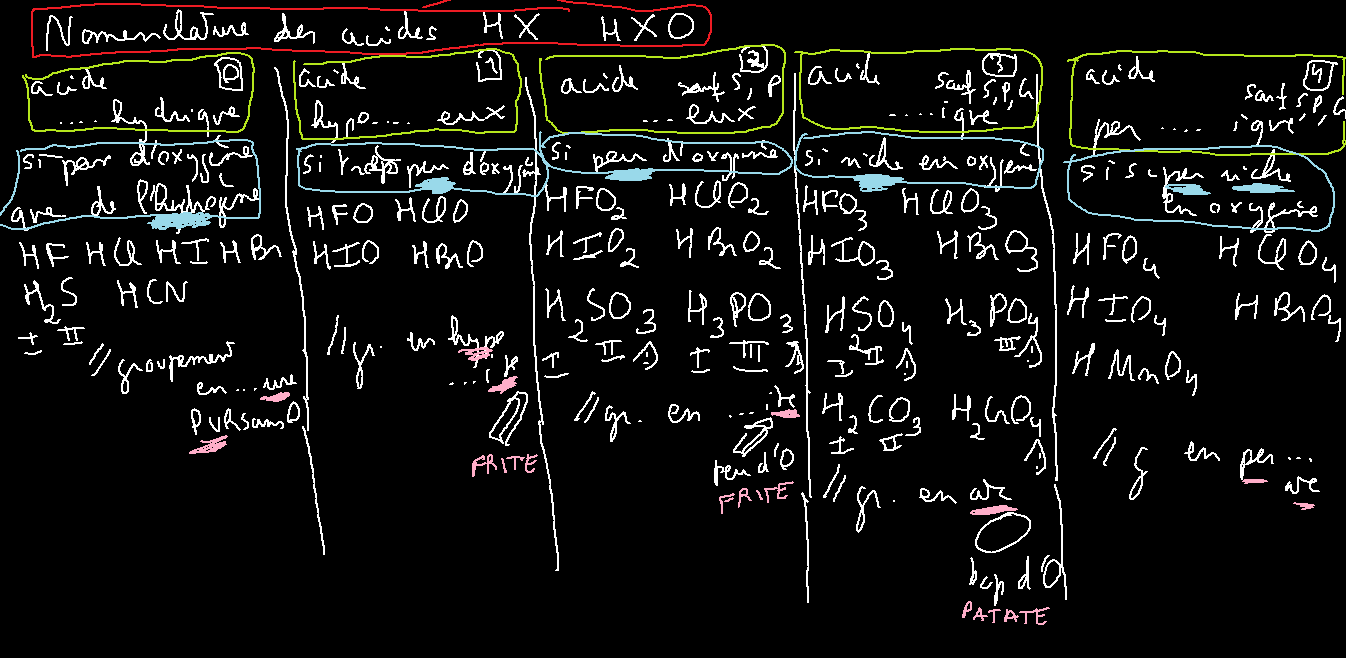 Nomenclature des acides HX HXO
acide 0
.... hydrique
si pas d'oxygène
que de l'Hydrogène
HF HCl HI HBr
H2S HCN
I II
// groupement
en ... ure
PURsansO
acide 1
hypo .... eux
si très peu d'oxygène
HFO HClO
HIO HBrO
// gr. en hypo
... ite
FRITE
acide 2 sauf S, P
... eux
si peu d'oxygène
HFO2 HClO2
HIO2 HBrO2
H2SO3 H3PO3
I II /!\ I III /!\
// gr. en ... ite
peu d'O
FRITE
acide 3 sauf S, P, Cr
.... ique
si riche en oxygène
HFO3 HClO3
HIO3 HBrO3
H2SO4 H3PO4
I II /!\ III /!\
H2CO3 H2CrO4
I II /!\
// gr. en ate
bcp d'O
PATATE
acide 4
sauf S, P, Cr
per .... ique
si super riche
en oxygène
HFO4 HClO4
HIO4 HBrO4
HMnO4
// g en per ...
ate